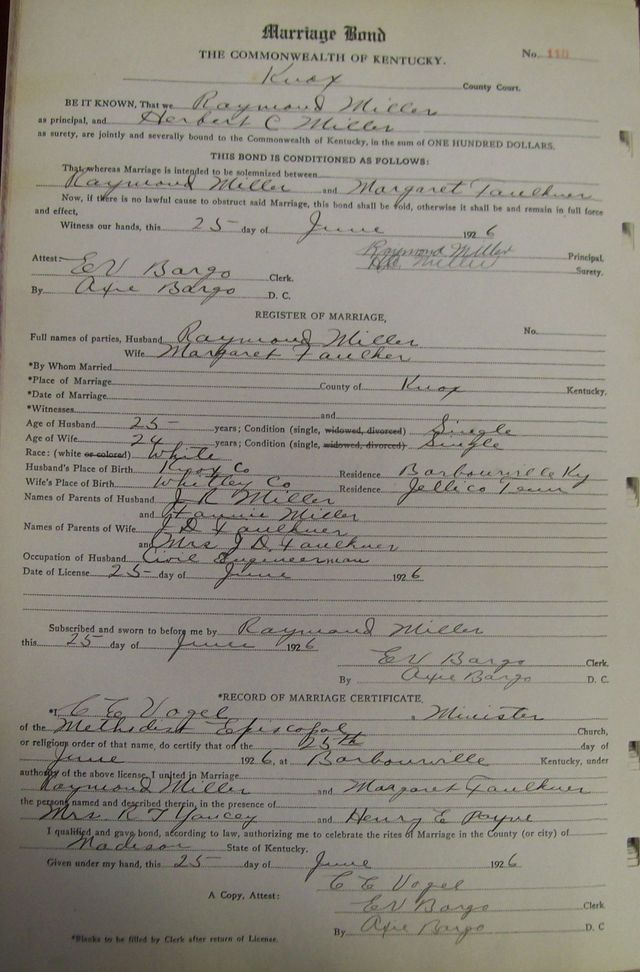 Marriage Bond
THE COMMONWEALTH OF KENTUCKY. No. 110
Knox County Court.
BE IT KNOWN, That we Raymond Miller
as principal, and Herbert C Miller
as surety, are jointly and severally bound to the Commonwealth of Kentucky, in the sum of ONE HUNDRED DOLLARS.
THIS BOND IS CONDITIONED AS FOLLOWS:
That, whereas Marriage is intended to be solemnized between
Raymond Miller and Margaret Faulkner
Now, if there is no lawful cause to obstruct said Marriage, this bond shall be void, otherwise it shall be and remain in full force
and effect,
Witness our hands, this 25 day of June 1926
Raymond Miller Principal,
Attest: Miller Surety.
EV Bargo Clerk.
By Axie Bargo D. C.
REGISTER OF MARRIAGE,
Full names of parties, Husband Raymond Miller No.
Wife Margaret Faulkner
*By Whom Married
*Place of Marriage County of Knox Kentucky.
*Date of Marriage
*Witnesses and
Age of Husband 25 years; Condition (single, widowed, divorced) Single
Age of Wife 24 years; Condition (single, widowed, divorced) Single
Race: (white or colored) White
Husband's Place of Birth Knox Co Residence Barbourville Ky
Wife's Place of Birth Whitley Co Residence Jellico Tenn
Names of Parents of Husband J R Miller
and Fannie Miller
Names of Parents of Wife J D Faulkner
and Mrs J D Faulkner
Occupation of Husband Civil Engineer
Date of License 25 day of June 1926
Subscribed and sworn to before me by Raymond Miller
this 25 day of June 1926
EV Bargo Clerk.
By Axie Bargo D. C.
*RECORD OF MARRIAGE CERTIFICATE.
*I, C E Vogel, Minister
of the Methodist Episcopal Church,
or religious order of that name, do certify that on the 25th day of
June 1926, at Barbourville Kentucky, under
authority of the above license, I united in Marriage
Raymond Miller and Margaret Faulkner
the persons named and described therein, in the presence of
Mrs. R T Yancey and Henry E Payne
I qualified and gave bond, according to law, authorizing me to celebrate the rites of Marriage in the County (or city) of
Madison State of Kentucky.
Given under my hand, this 25 day of June 1926
C E Vogel
A Copy, Attest: EV Bargo Clerk
By Axie Bargo D. C
*Blanks to be filled by Clerk after return of License.